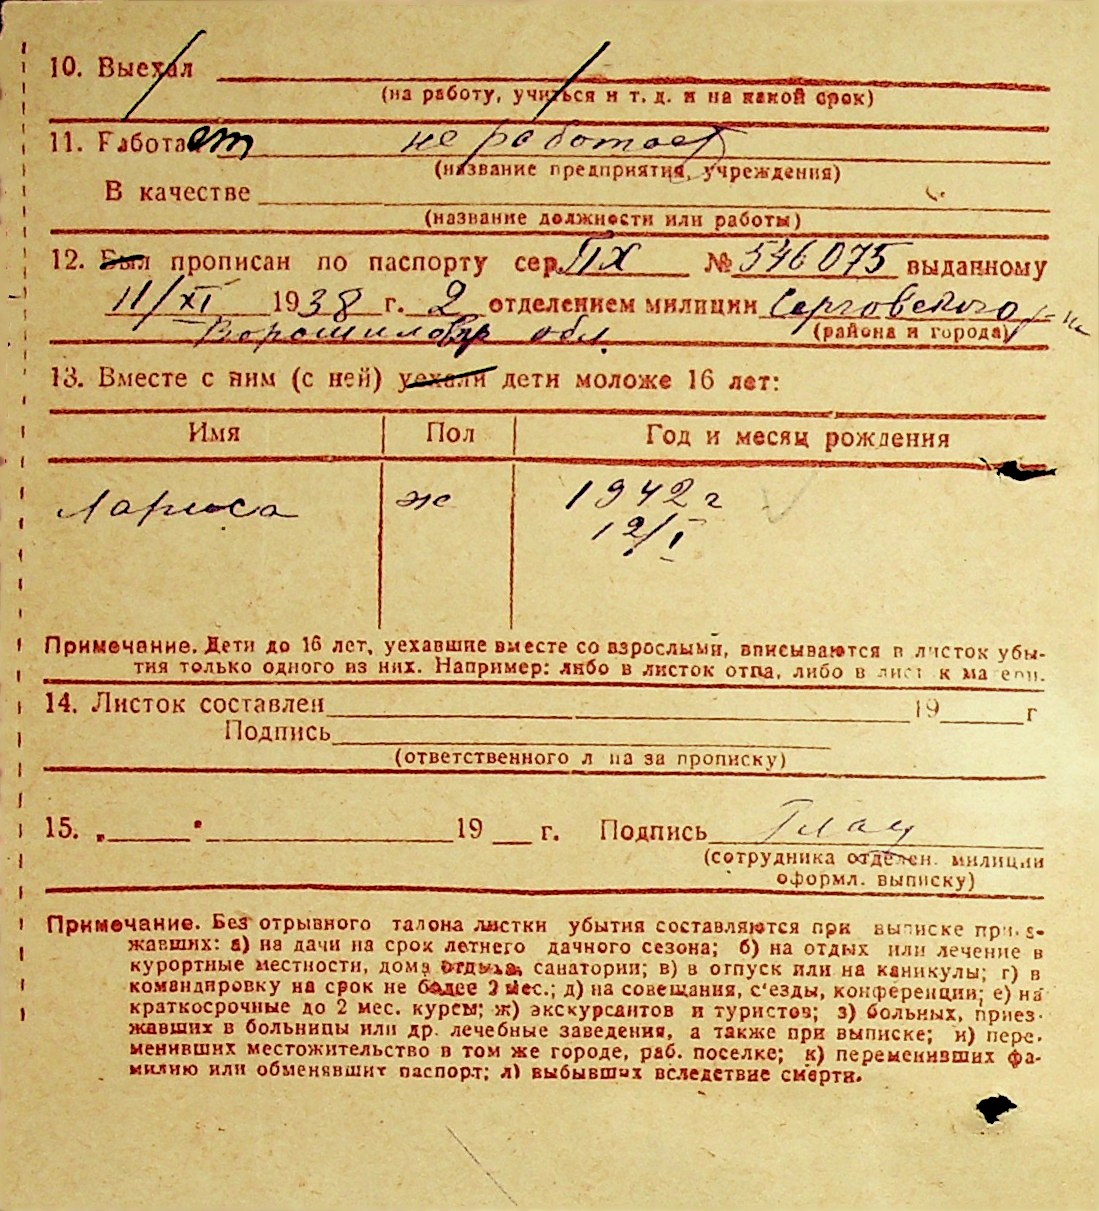 10. Выехал
(на работу, учиться и т. д. и на какой срок)
11. Работает не работает
(название предприятия, учреждения)
В качестве
(название должности или работы)
12. Был прописан по паспорту сер. ПХ № 546075 выданному
11/XI 1938 г. 2 отделением милиции Серговского р-на
Ворошиловгр обл. (района и города)
13. Вместе с ним (с ней) уехали дети моложе 16 лет:
Имя Пол Год и месяц рождения
Лариса ж 1942 г
12/I
Примечание. Дети до 16 лет, уехавшие вместе со взрослыми, вписываются в листок убы-
тия только одного из них. Например: либо в листок отца, либо в листок матери.
14. Листок составлен 19 г
Подпись
(ответственного лица за прописку)
15. „ " 19 г. Подпись
(сотрудника отделен. милиции
оформл. выписку)
Примечание. Без отрывного талона листки убытия составляются при выписке приез-
жавших: а) на дачи на срок летнего дачного сезона; б) на отдых или лечение в
курортные местности, дома отдыха, санатории; в) в отпуск или на каникулы; г) в
командировку на срок не более 2 мес.; д) на совещания, с'езды, конференции; е) на
краткосрочные до 2 мес. курсы; ж) экскурсантов и туристов; з) больных, приез-
жавших в больницы или др. лечебные заведения, а также при выписке; и) пере-
менивших местожительство в том же городе, раб. поселке; к) переменивших фа-
милию или обменявших паспорт; л) выбывших вследствие смерти.